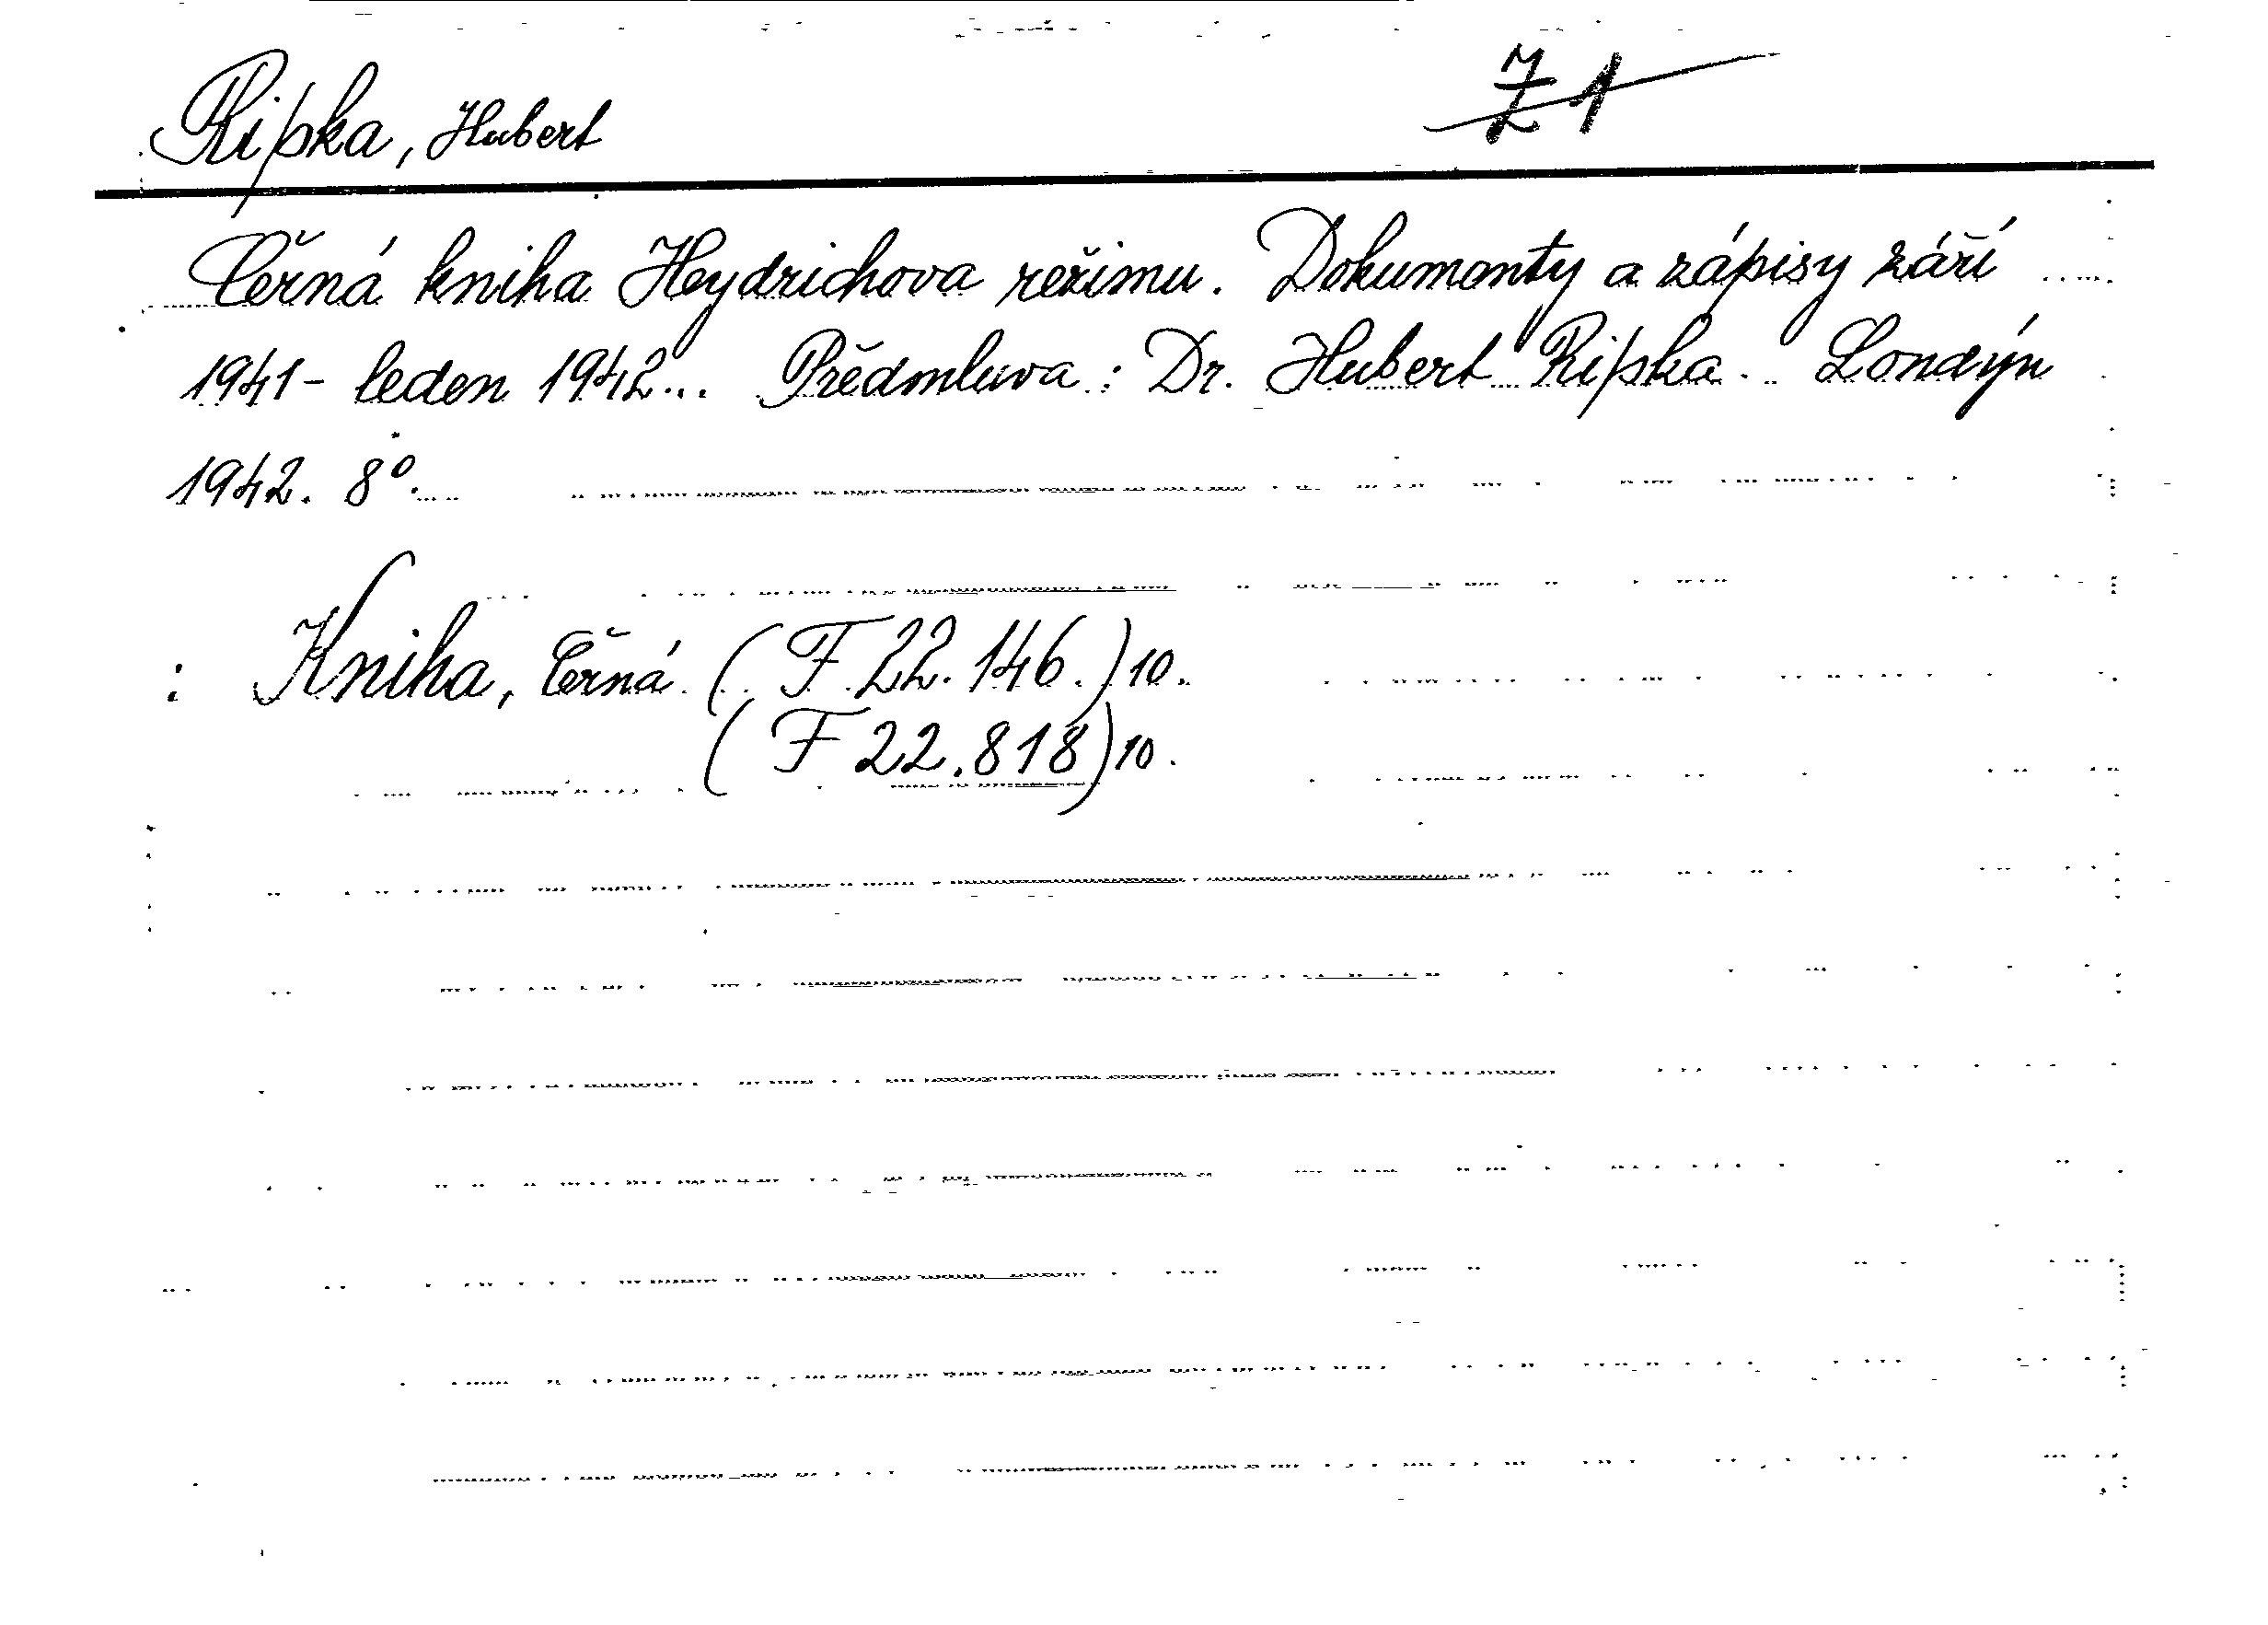 Ripka, Hubert Z 1
Černá kniha Heydrichova režimu. Dokumenty a zápisy září
1941 - leden 1942... Předmluva: Dr. Hubert Ripka. Londýn
1942. 8°.
: Kniha, Černá. (F 22.146.) 10.
(F 22.818) 10.